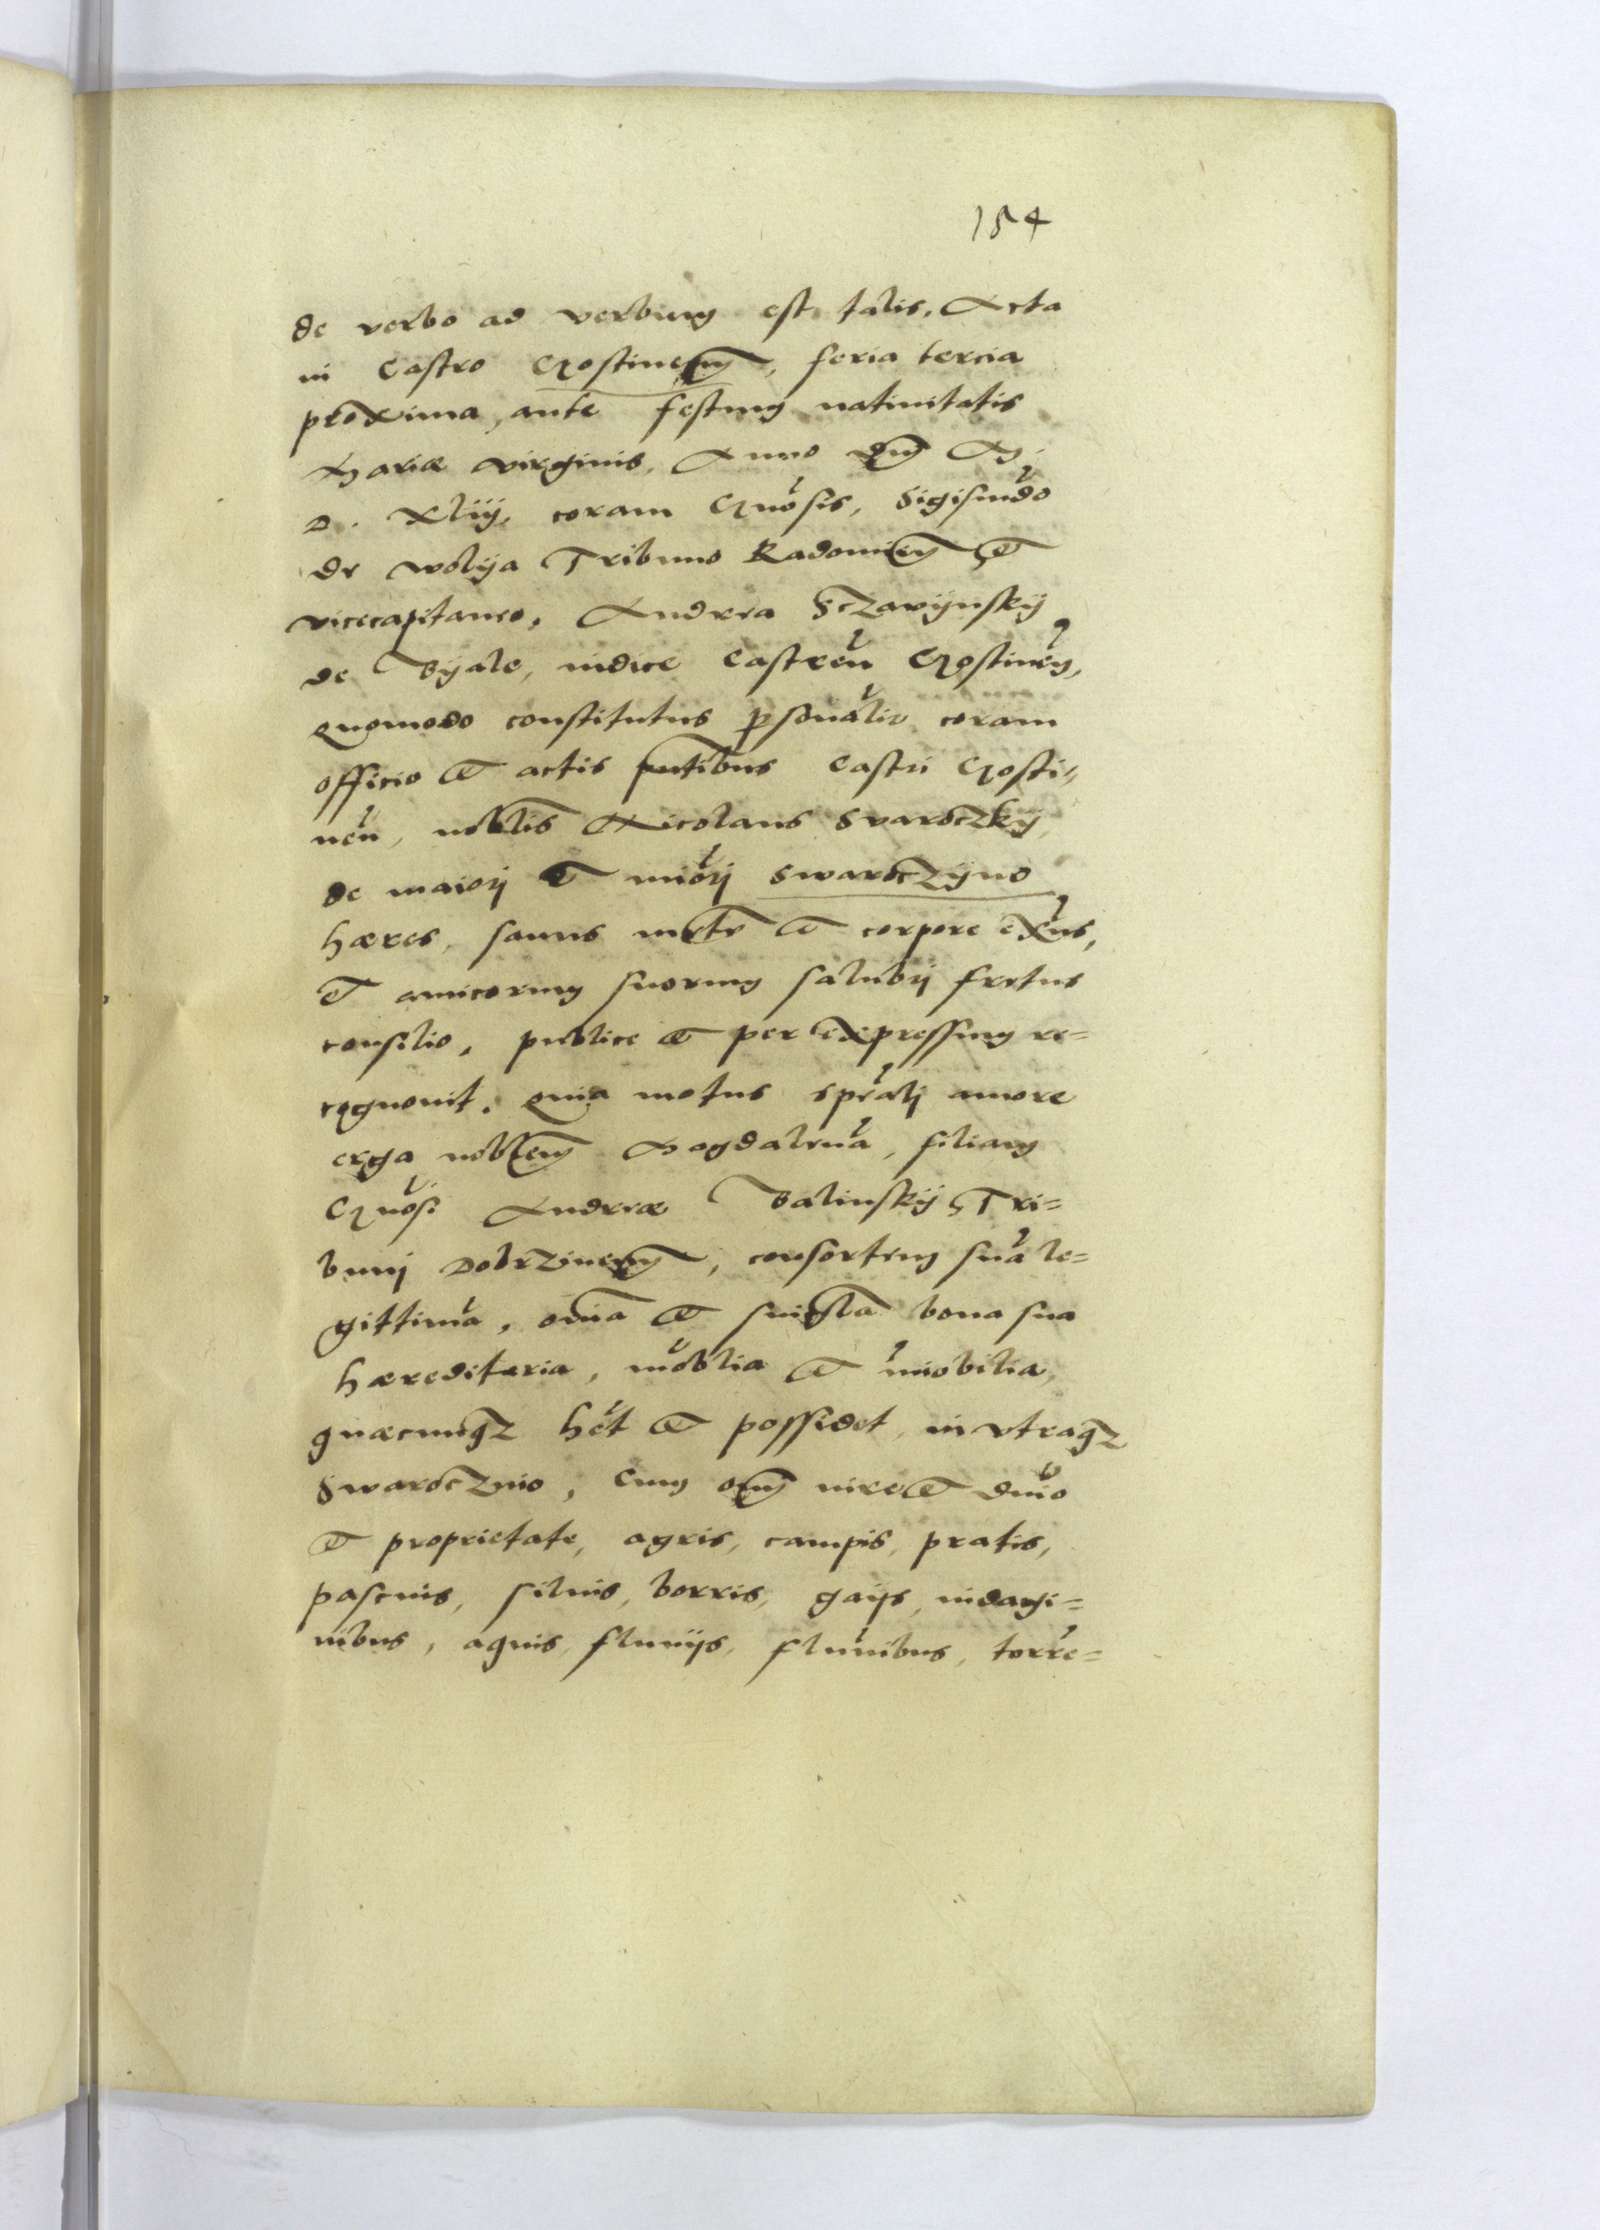 154
de verbo ad verbum est talis. Acta
in Castro Gostinen͂, feria tercia
proxima, ante festum natiuitatis
Mariæ virginis, Anno Dnĩ M.
D. Xliij, coram Gnõsis, Sigismũdo
de Wolya Tribuno Radomien͂ et
vicecapitaneo, Andrea Sczavynsky
de Byale, iudice Castren͂ Gostinen͂,
quomodo constitutus psonalit̃ coram
officio et actis pñtibus Castri Gosti-
nen͂, nobĩlis Nicolaus Svaroczky
de maiorj et miñorj Swaroczyno
hæres, sanus mẽte et corpore exñs,
et amicorum suorum salubrj fretus
consilio, publice et per expressum re-
cognouit, quia motus spẽcialj amore
erga nobĩlem Magdalenã, filiam
Gnõsi Andreæ Balinsky Tri-
bunj Dobrzinen͂, consortem suã le-
gittimã, oĩnia et singlã bona sua
hæreditaria, mõblia et im̃obilia,
quæcunqz hẽt et possidet in vtraqz
Swarocznio, cum oĩm iure et dñio
et proprietate, agris, campis, pratis,
pascuis, siluis, borris, gaijs, indagi-
nibus, aquis, fluuijs, flumĩnibus, torre-